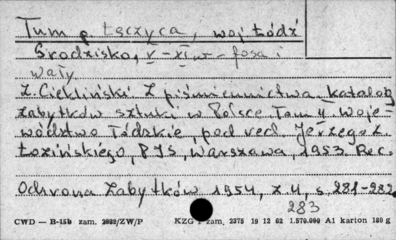 Tum p. Łęczyca, woj Łódź
Grodzisko, V-XI w. - fosa i
wały
Z. Ciekliński Z piśmiennictwa. Katalog
zabytków sztuki w Polsce Tom II, Woje
wództwo Łódzkie, pod red. Jerzego Z.
Łozińskiego, PIS, Warszawa, 1953. Rec.
Ochrona Zabytków 1954, z 4, s. 281-282
283
CWD — B-15b zam. 2092/ZW/P KZG 1 zam. 2375 19 12 62 1.570.000 A1 karton 180 g